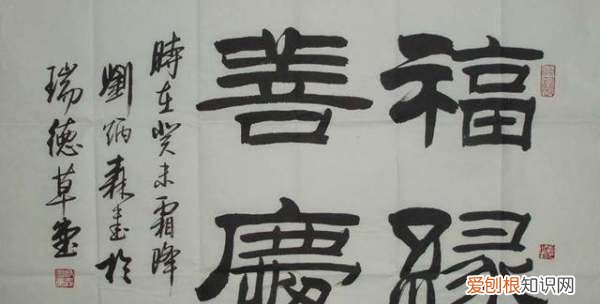 福緣
善慶
時在癸未霜降
劉炳森書於
瑞德草堂
爱刨根知识网